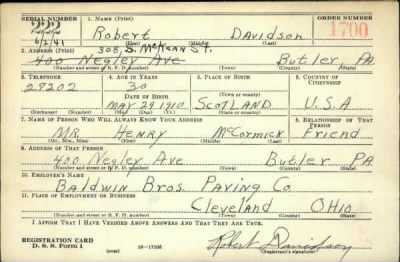 SERIAL NUMBER 1. NAME (Print) ORDER NUMBER
Robert Davidson 1700
6/2/41 (First) (Middle) (Last)
308 S. McKean St.
2. ADDRESS (Print)
400 Negley Ave Butler, PA
(Number and street or R. F. D. number) (Town) (County) (State)
3. TELEPHONE 4. AGE IN YEARS 5. PLACE OF BIRTH 6. COUNTRY OF CITIZENSHIP
27202 30
DATE OF BIRTH (Town or county)
MAY 29 1910 SCOTLAND U.S.A
(Exchange) (Number) (Mo.) (Day) (Yr.) (State or country)
7. NAME OF PERSON WHO WILL ALWAYS KNOW YOUR ADDRESS 8. RELATIONSHIP OF THAT PERSON
MR HENRY McCormick Friend
(Mr., Mrs., Miss) (First) (Middle) (Last)
9. ADDRESS OF THAT PERSON
400 Negley Ave Butler PA
(Number and street or R. F. D. number) (Town) (County) (State)
10. EMPLOYER'S NAME
Baldwin Bros. Paving Co.
11. PLACE OF EMPLOYMENT OR BUSINESS
Cleveland OHIO
(Number and street or R. F. D. number) (Town) (County) (State)
I AFFIRM THAT I HAVE VERIFIED ABOVE ANSWERS AND THAT THEY ARE TRUE.
REGISTRATION CARD
D. S. S. Form 1 (over) 16—17105 Robert Davidson
(Registrant's signature)